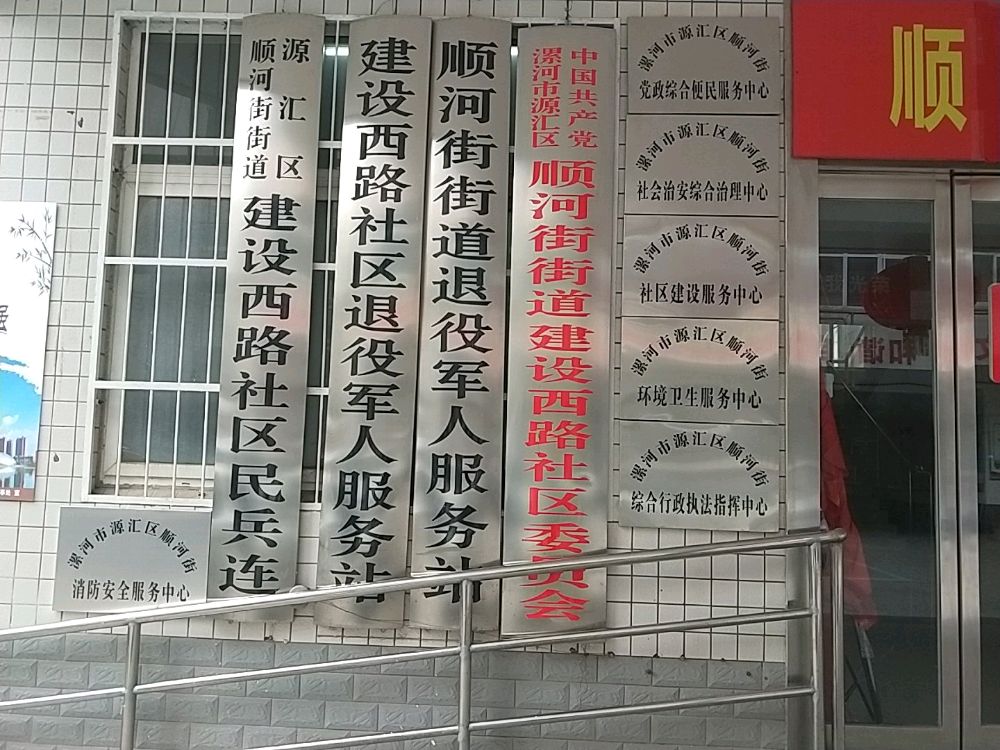 源汇区
顺河街街道
建设西路社区民兵连
建设西路社区退役军人服务站
顺河街街道退役军人服务站
中国共产党
漯河市源汇区
顺河街街道建设西路社区委员会
漯河市源汇区顺河街
党政综合便民服务中心
漯河市源汇区顺河街
社会治安综合治理中心
漯河市源汇区顺河街
社区建设服务中心
漯河市源汇区顺河街
环境卫生服务中心
漯河市源汇区顺河街
综合行政执法指挥中心
漯河市源汇区顺河街
消防安全服务中心
顺
和谐